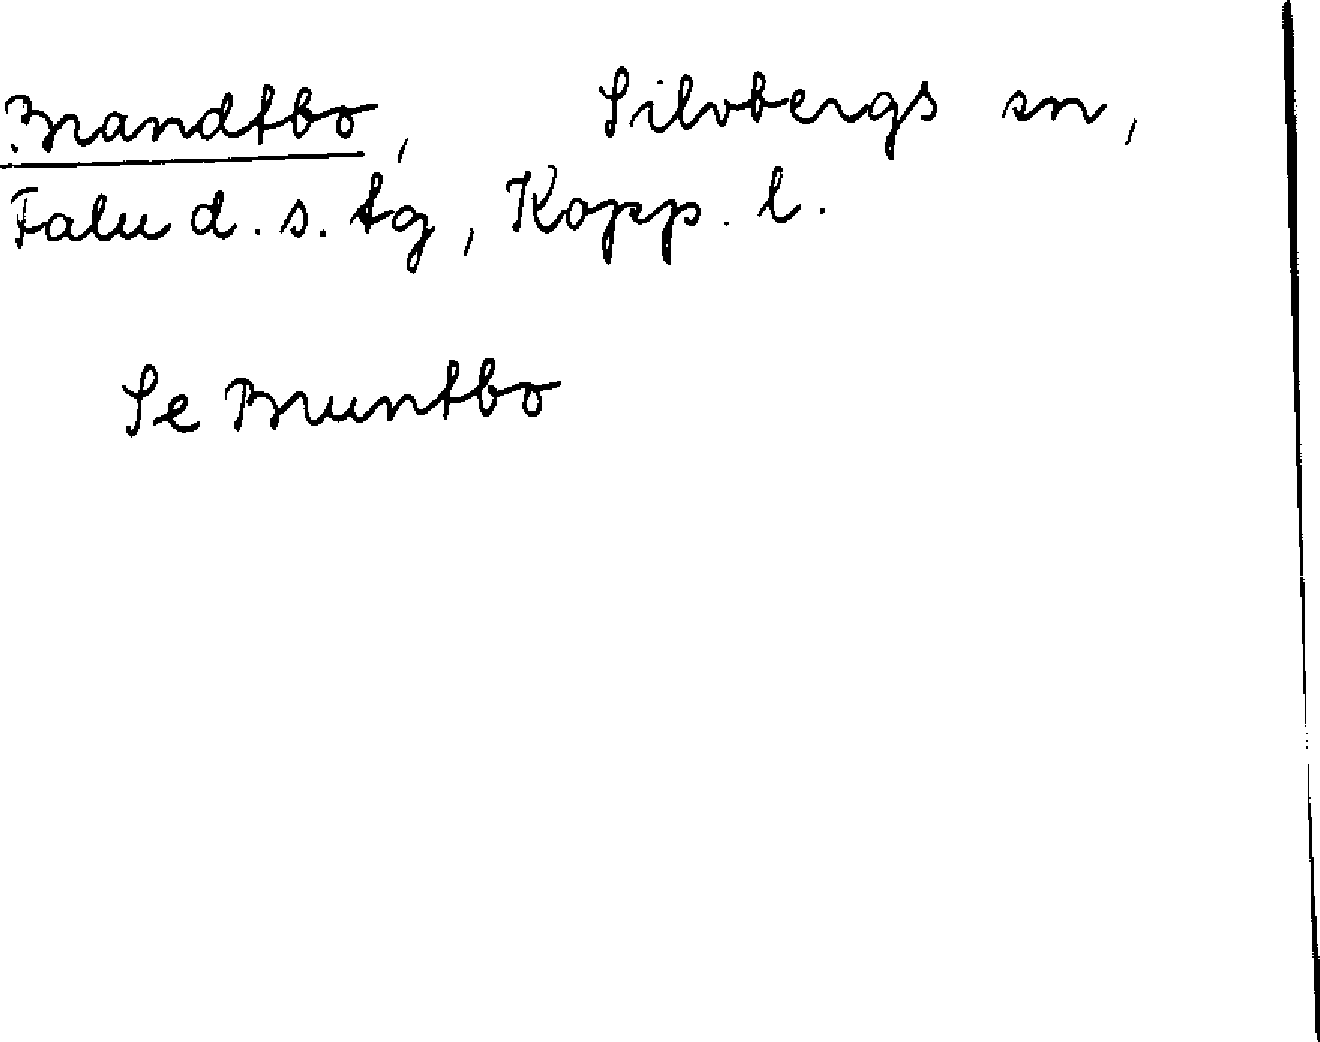 Brandtbo, Silvbergs sn,
Falu d. s. tg, Kopp. l.
Se Bruntbo